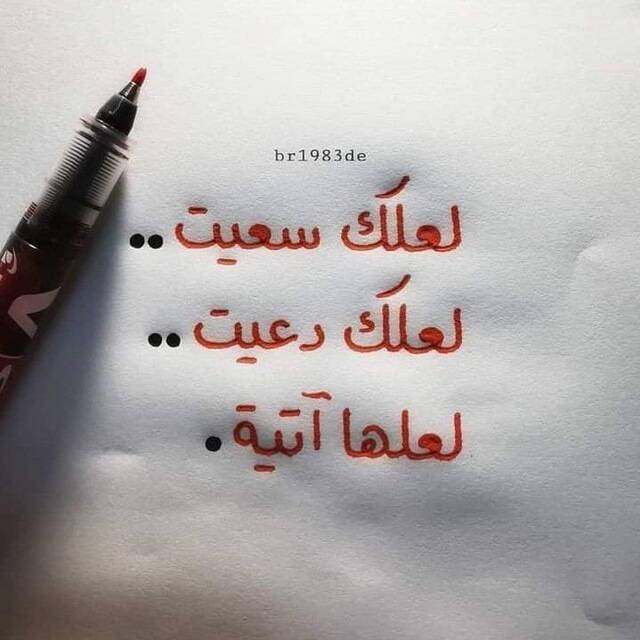 br1983de
لعلَك سعيت ..
لعلَك دعيت ..
لعلها آتية .